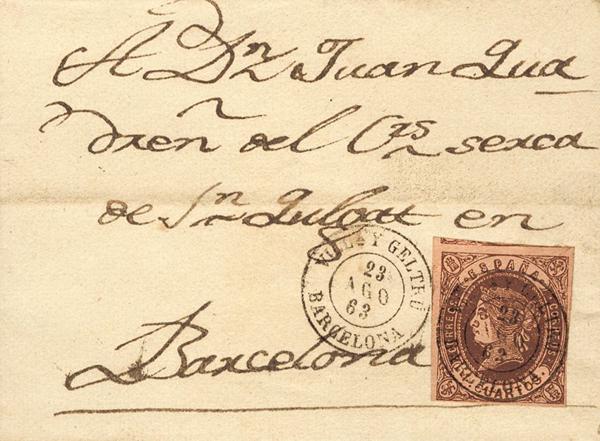 A Dn Juan Qua
dren del Crs serca
de Sn Qulgat en
Barcelona
VILLAN.ª Y GELTRU
23
AGO
63
BARCELONA
ESPAÑA
CUARTOS